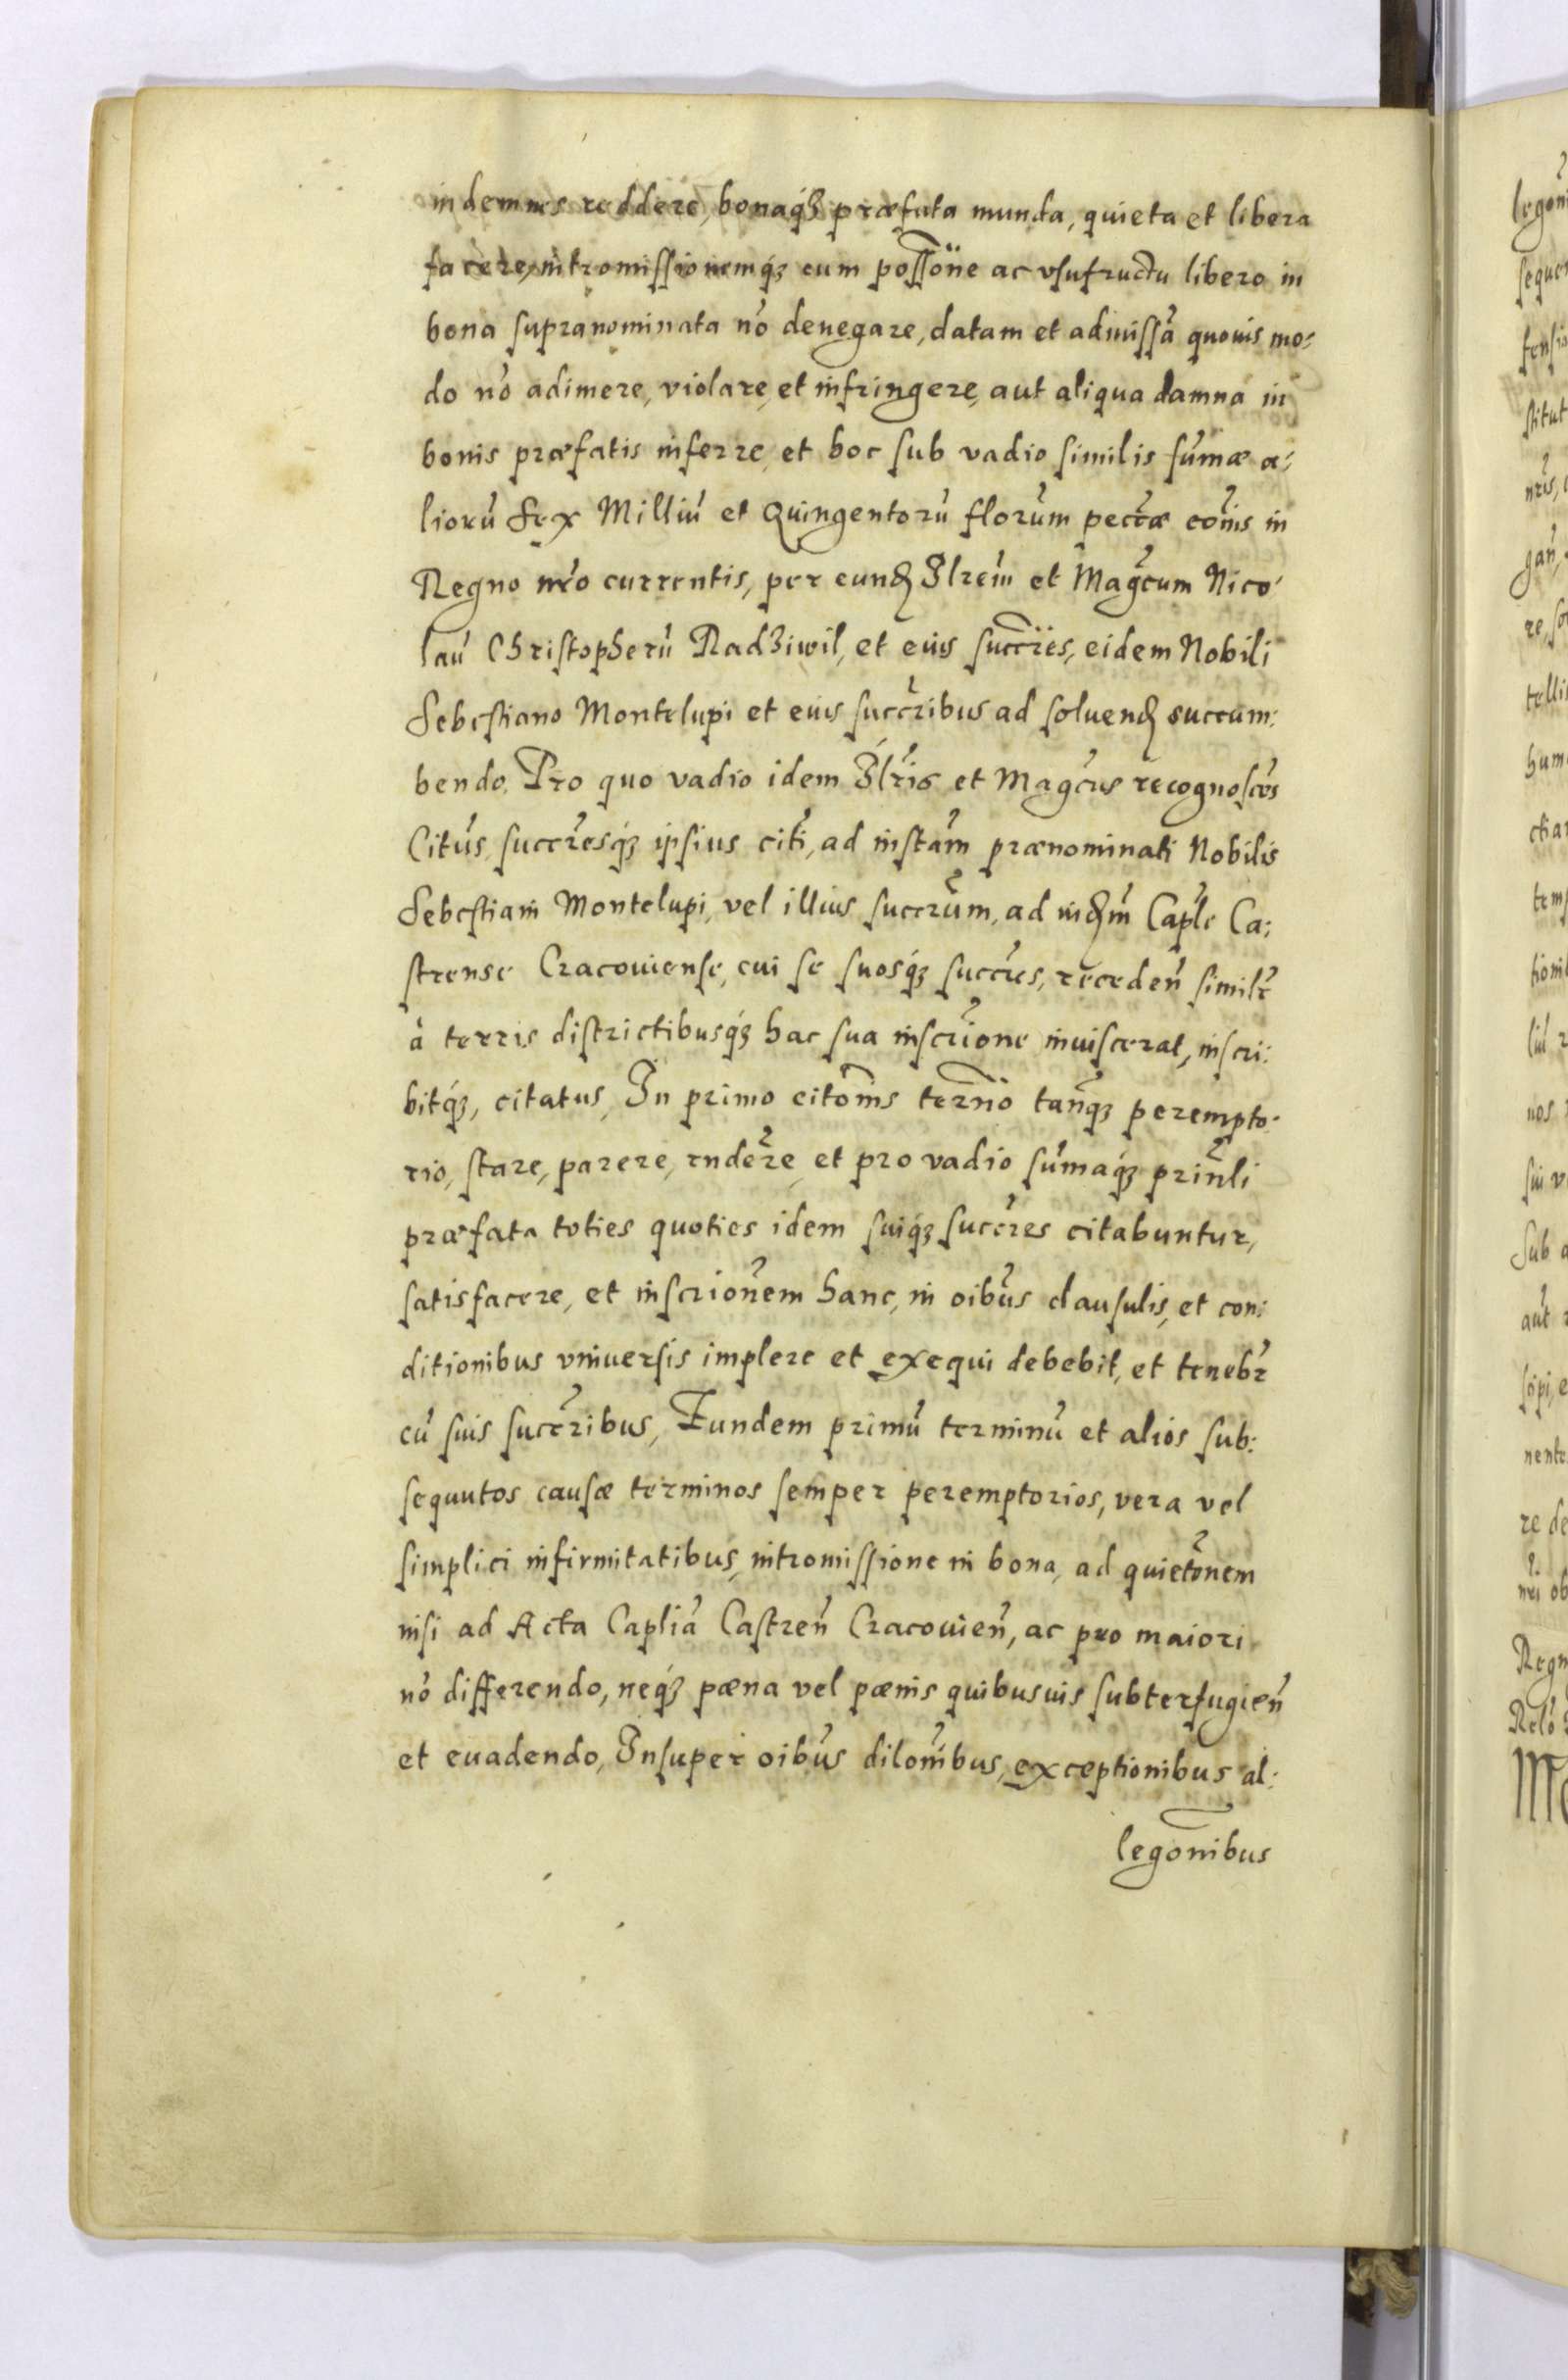 indemnes reddere, bonaq́ꝫ præfata munda, quieta et libera
facere, intromissionemq́ꝫ cum possõne ac vsufructu libero in
bona supranominata nõ denegare, datam et admissã quouis mo:
do nõ adimere, violare, et infringere, aut aliqua damna in
bonis præfatis inferre, et hoc sub vadio similis sũmæ a:
liorũ Sex Milliũ et Quingentorũ florũm pectæ cõis in
Regno nr̃o currentis, per eund Illrẽm et Magc̃um Nico:
laũ Christopherũ Radziwil, et eius succr̃es, eidem Nobili
Sebestiano Montelupi et eius succr̃ibus ad soluend succum:
bendo. Pro quo vadio idem Illr̃is et Magc̃us recognosc̃es
Citũs, succr̃esq́ꝫ ipsius citĩ, ad instãm prænominati Nobilis
Sebestiani Montelupi, vel illius succrũm, ad iudm̃ Capl̃e Ca:
strense Cracouiense, cui se suosq́ꝫ succr̃es, recedeñ similr̃
à terris districtibusq́ꝫ hac sua inscrĩone inuiscerat, inscri:
bitq́ꝫ, citatus, In primo citõnis terñio tanq̃ꝫ perempto:
rio, stare, parere, rndẽre, et pro vadio sũmaq́ꝫ prinl̃i
præfata toties quoties idem suiq́ꝫ succr̃es citabuntur,
satisfacere, et inscriõnem hanc, in oibũs clausulis, et con:
ditionibus vniuersis implere et exequi debebit, et tenebr̃
cũ suis succr̃ibus, Eundem primũ terminũ et alios sub:
sequutos causæ terminos semper peremptorios, vera vel
simplici infirmitatibus, intromissione in bona, ad quietõnem
nisi ad Acta Capliã Castreñ Cracouieñ, ac pro maiori
nõ differendo, neq́ꝫ pæna vel pænis quibusuis subterfugieñ
et euadendo, Insuper oibũs diloñibus, exceptionibus al:
legoñibus